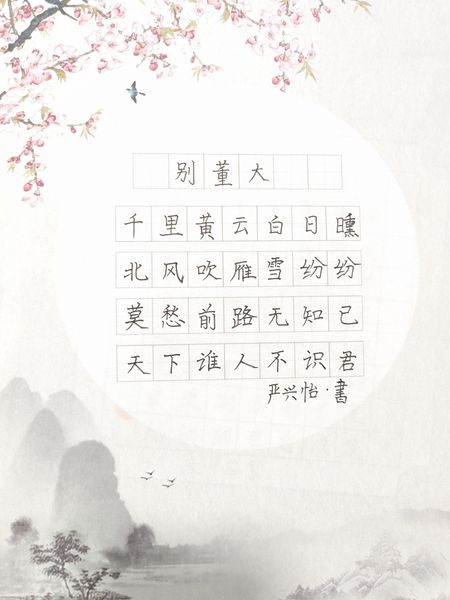 别董大
千里黄云白日曛
北风吹雁雪纷纷
莫愁前路无知己
天下谁人不识君
严兴怡·書